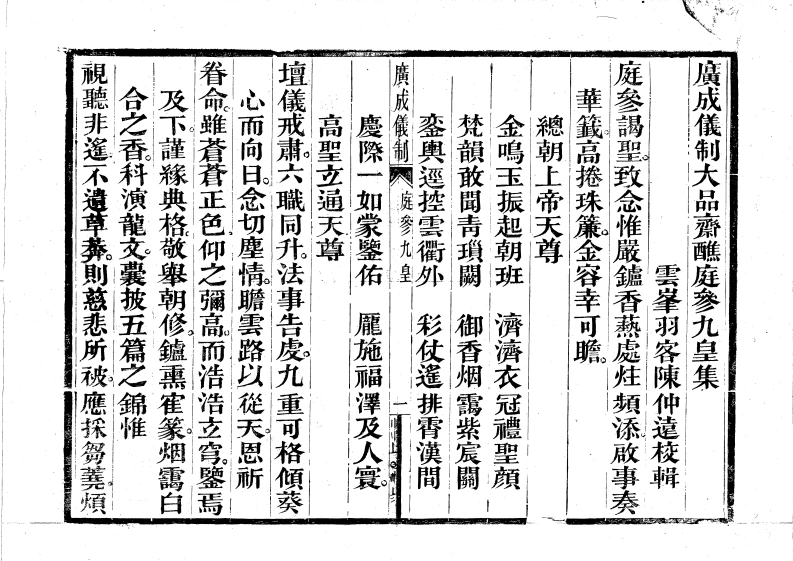 廣成儀制大品齋醮庭參九皇集
雲峯羽客陳仲遠校輯
庭參謁聖。致念惟嚴鑪香爇處炷頻添。啟事奏
華籤。高捲珠簾。金容幸可瞻。
總朝上帝天尊
金鳴玉振起朝班　濟濟衣冠禮聖顏
梵韻敢聞靑瑣闕　御香烟靄紫宸關
鑾輿逕控雲衢外　彩仗遙排霄漢間
廣成儀制　庭參九皇　一
慶際一如蒙鑒佑　厖施福澤及人寰。
高聖立通天尊
壇儀戒肅。六職同升。法事告虔。九重可格傾葵
心而向日。念切塵情。瞻雲路以從天。恩祈
眷命。雖蒼蒼正色仰之彌高。而浩浩立穹。鑒焉
及下。謹緣典格。敬舉朝修。鑪熏寉篆。烟靄白
合之香。科演龍文。囊披五篇之錦惟
視聽非遙不遺草莾。則慈悲所被。應採芻蕘煩